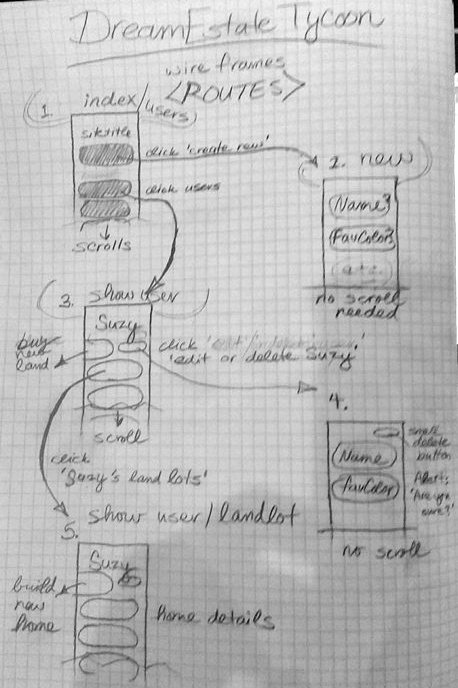 DreamEstate Tycoon
wire frames
<ROUTES>
1. index/users)
sitetitle
click 'create new'
click users
scrolls
2. new
(Name?)
(FavColor?)
no scroll
needed
3. show user
Suzy
buy
new
land
click
'edit or delete Suzy.'
scroll
click
'Suzy's land lots'
4.
small
delete
button
(Name)
(favColor)
Alert:
'Are you
sure?'
no scroll
5. show user/landlot
Suzy
build
new
home
home details